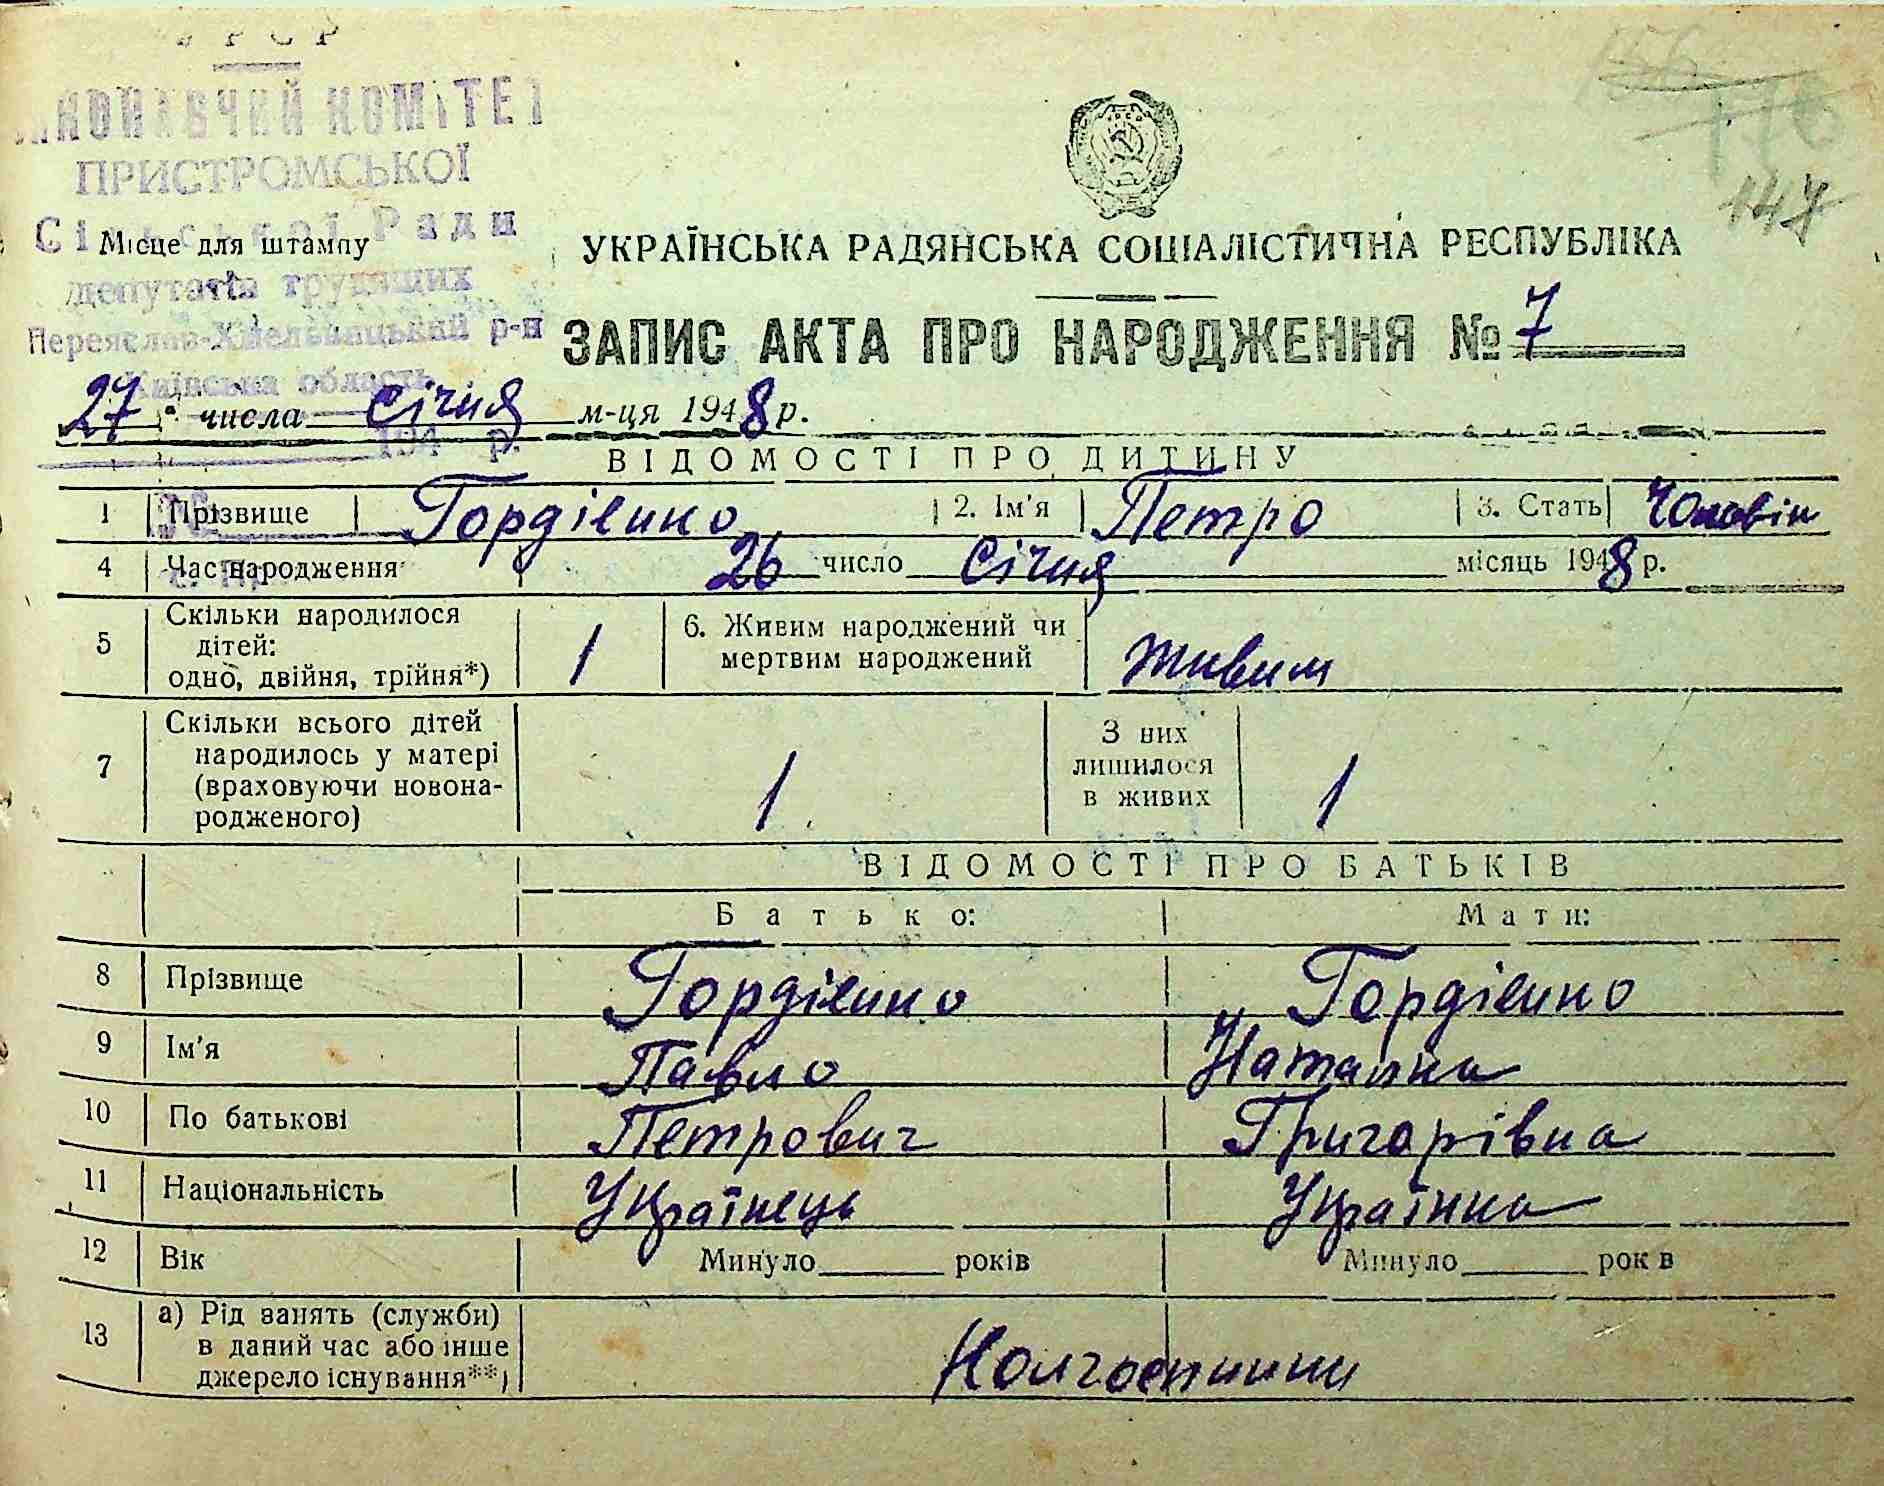 УРСР
ВИКОНАВЧИЙ КОМІТЕТ
ПРИСТРОМСЬКОЇ
Сільської Ради
депутатів трудящих
Переяслав-Хмельницький р-н
Київська область
194 р.
Місце для штампу
147
УКРАЇНСЬКА РАДЯНСЬКА СОЦІАЛІСТИЧНА РЕСПУБЛІКА
ЗАПИС АКТА ПРО НАРОДЖЕННЯ № 7
27 числа Січня м-ця 1948 р.
ВІДОМОСТІ ПРО ДИТИНУ
1 Прізвище Гордієнко 2. Ім'я Петро 3. Стать Чоловік
4 Час народження 26 число Січня місяць 1948 р.
5 Скільки народилося дітей: одно, двійня, трійня*) 1 6. Живим народжений чи мертвим народжений живим
7 Скільки всього дітей народилось у матері (враховуючи новонародженого) 1 З них лишилося в живих 1
ВІДОМОСТІ ПРО БАТЬКІВ
Батько: Мати:
8 Прізвище Гордієнко Гордієнко
9 Ім'я Павло Наталка
10 По батькові Петрович Григорівна
11 Національність Українець Українка
12 Вік Минуло років Минуло років
13 а) Рід занять (служби) в даний час або інше джерело існування**) Колгоспники